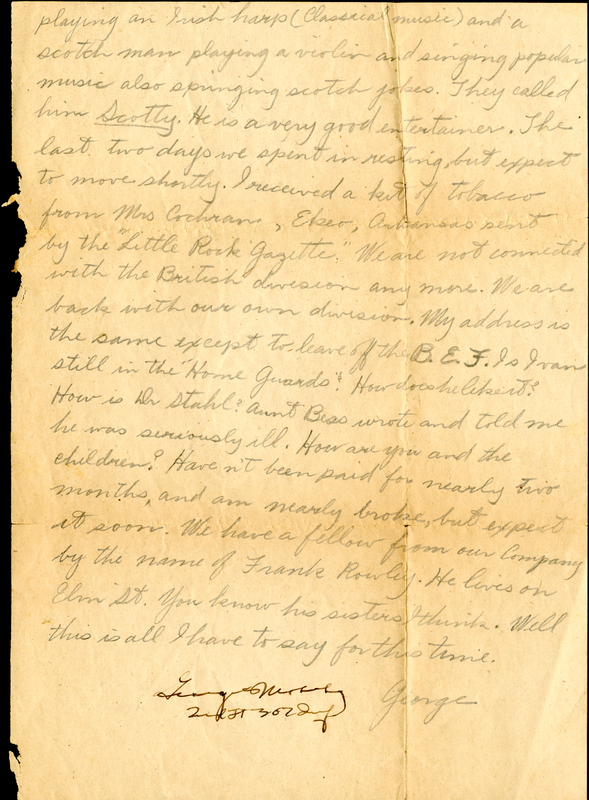 playing an Irish harp (Classical music) and a
scotch man playing a violin and singing popular
music also springing scotch jokes. They called
him Scotty. He is a very good entertainer. The
last two days we spent in resting, but expect
to move shortly. I received a kit of tobacco
from Mrs Cochran, Arkansas sent
by the "Little Rock Gazette". We are not connected
with the British division any more. We are
back with our own division. My address is
the same except to leave off the B. E. F. Is Ivan
still in the "Home Guards"? How does he like it?
How is Dr Stahl? Aunt Bess wrote and told me
he was seriously ill. How are you and the
children? Haven't been paid for nearly two
months, and am nearly broke, but expect
it soon. We have a fellow from our Company
by the name of Frank Rowley. He lives on
Elm St. You know his sisters I think. Well
this is all I have to say for this time.
George